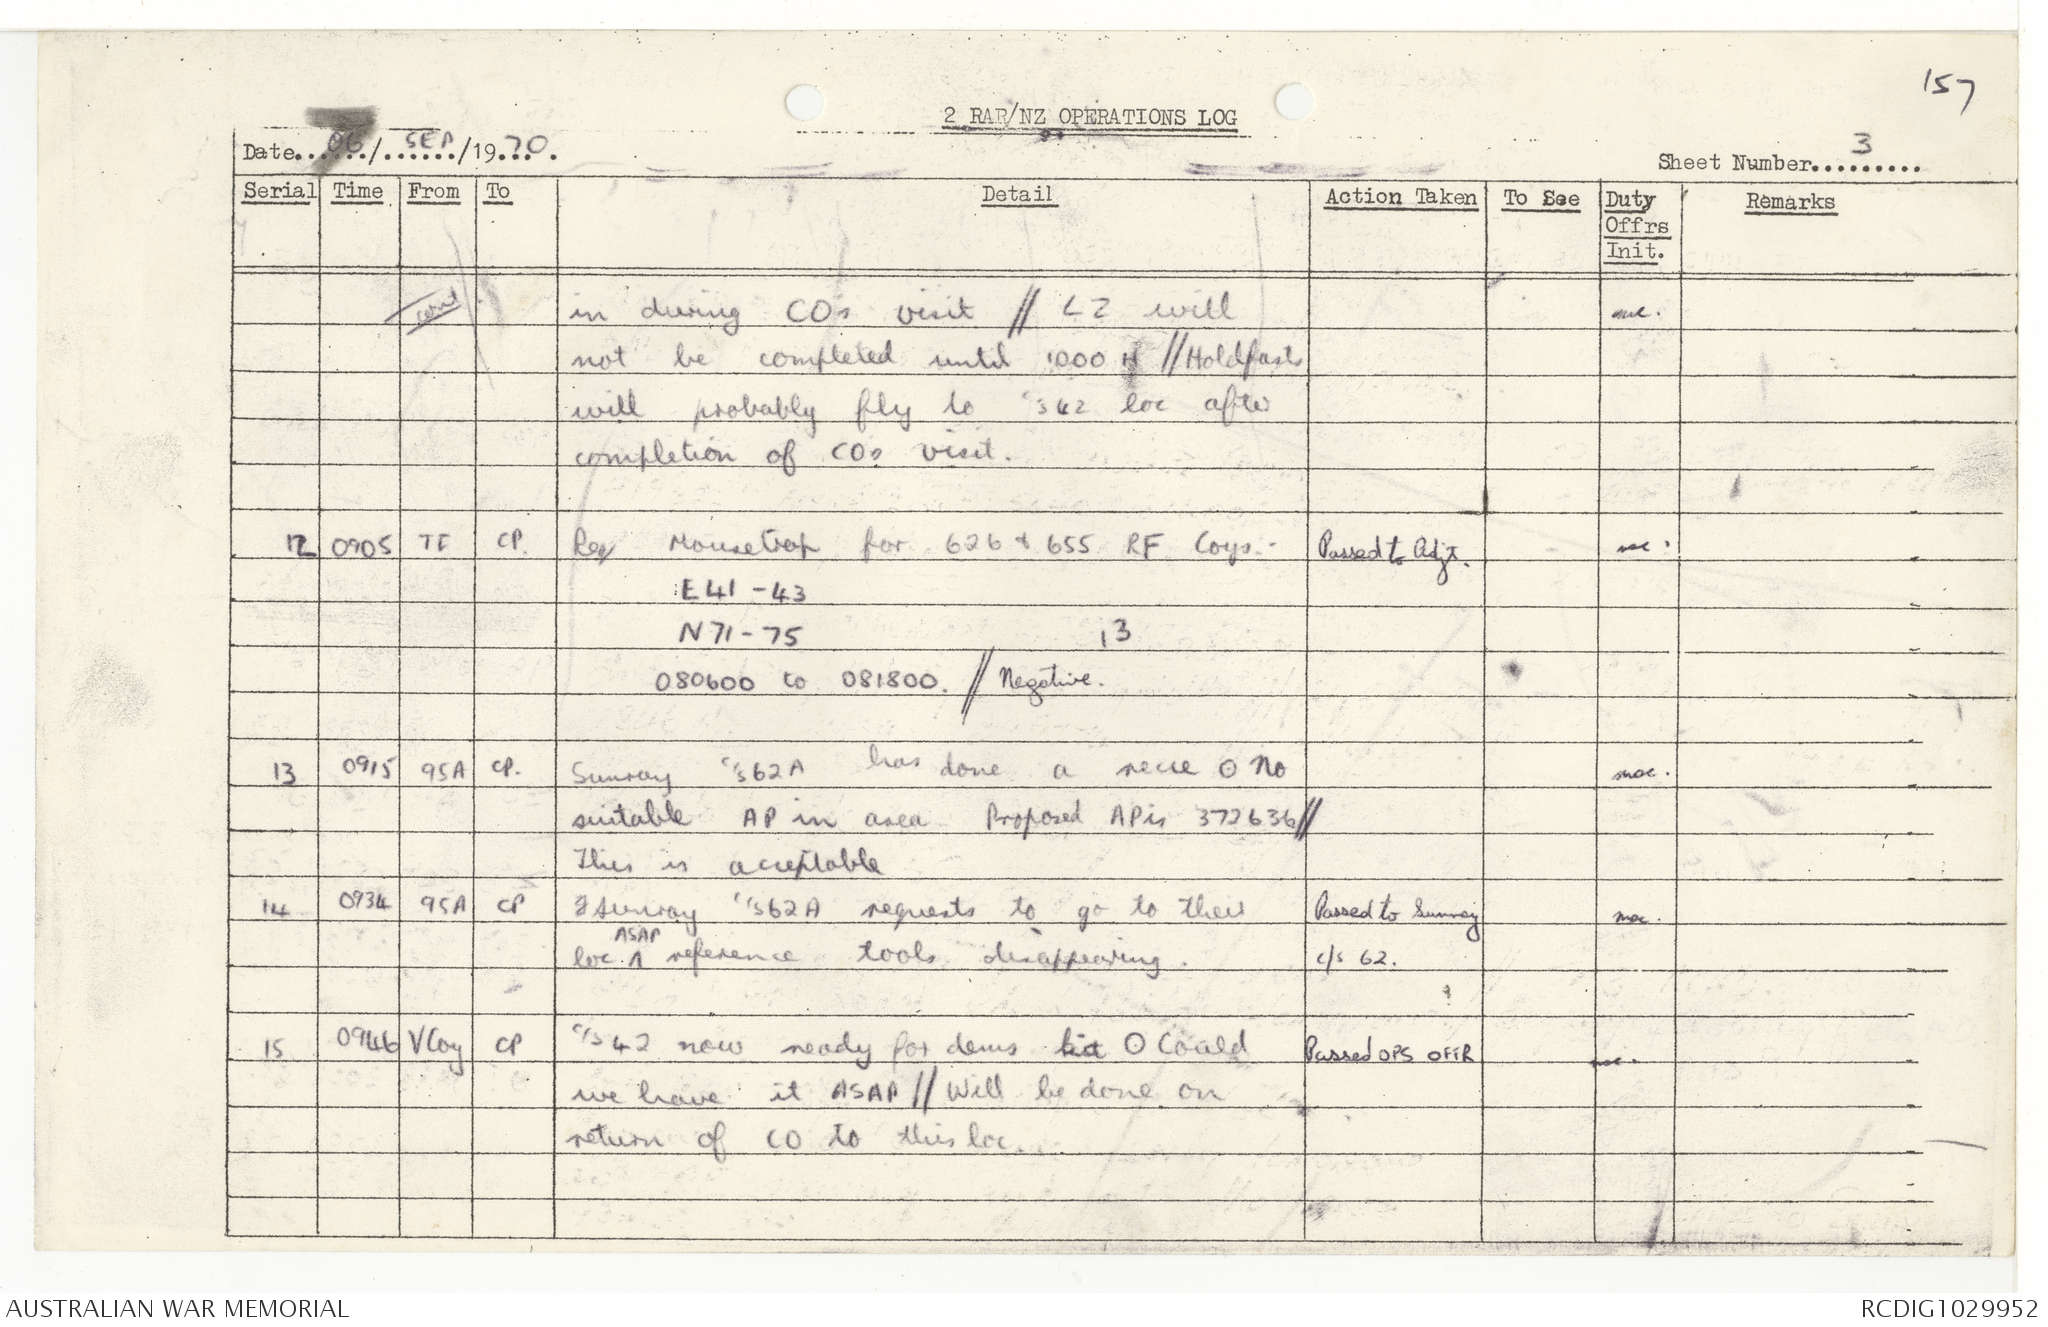 157
2 RAR/NZ OPERATIONS LOG
Date 06/SEP/1970.
Sheet Number 3
Serial Time From To Detail Action Taken To See Duty Offrs Init. Remarks
cont in during COs visit // LZ will
not be completed until 1000 H // Holdfasts
will probably fly to c/s 42 loc after
completion of COs visit.
12 0905 TF CP. Req Mousetrap for 626 & 655 RF Coys. - Passed to Adjt.
E41 - 43
N71 - 75 13
080600 to 081800. // Negative.
13 0915 95A CP. Sunray c/s 62A has done a recce O No
suitable AP in area Proposed AP is 372636 //
This is acceptable
14 0934 95A CP Sunray c/s 62A requests to go to their Passed to Sunray
loc ASAP reference tools disappearing. c/s 62.
15 0946 V Coy CP c/s 42 now ready for dems kit O Could Passed OPS OFFR
we have it ASAP // Will be done on
return of CO to this loc.
AUSTRALIAN WAR MEMORIAL
RCDIG1029952